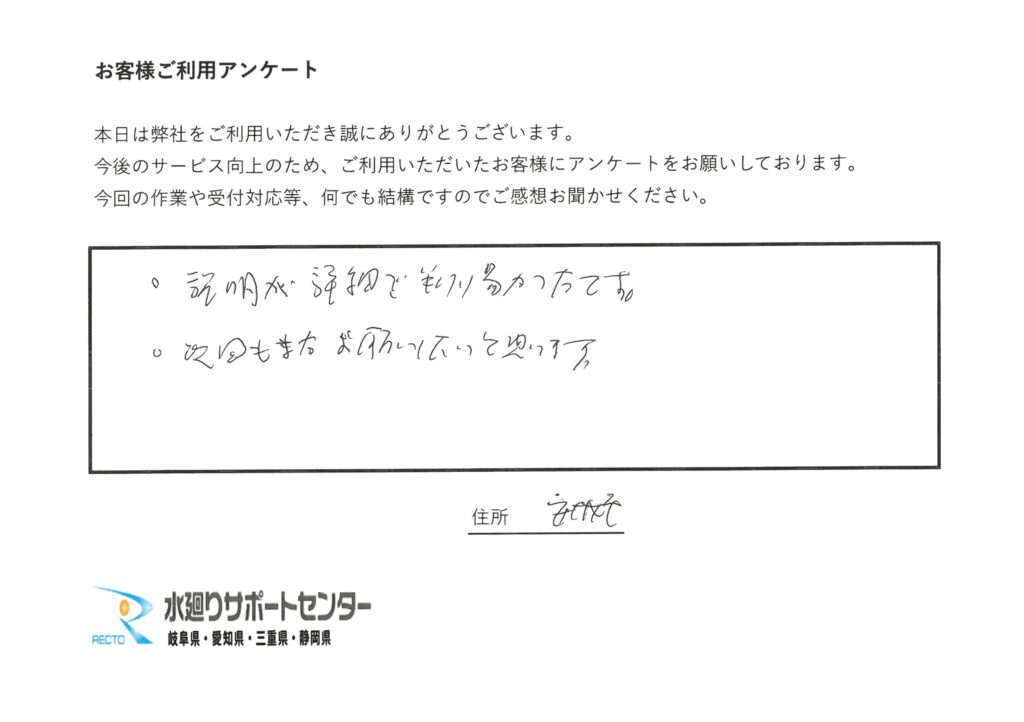 お客様ご利用アンケート
本日は弊社をご利用いただき誠にありがとうございます。
今後のサービス向上のため、ご利用いただいたお客様にアンケートをお願いしております。
今回の作業や受付対応等、何でも結構ですのでご感想お聞かせください。
○ 説明が詳細で判り易かったです。
○ 次回もまたお願いしたいと思います
住所
RECTO
水廻りサポートセンター
岐阜県・愛知県・三重県・静岡県